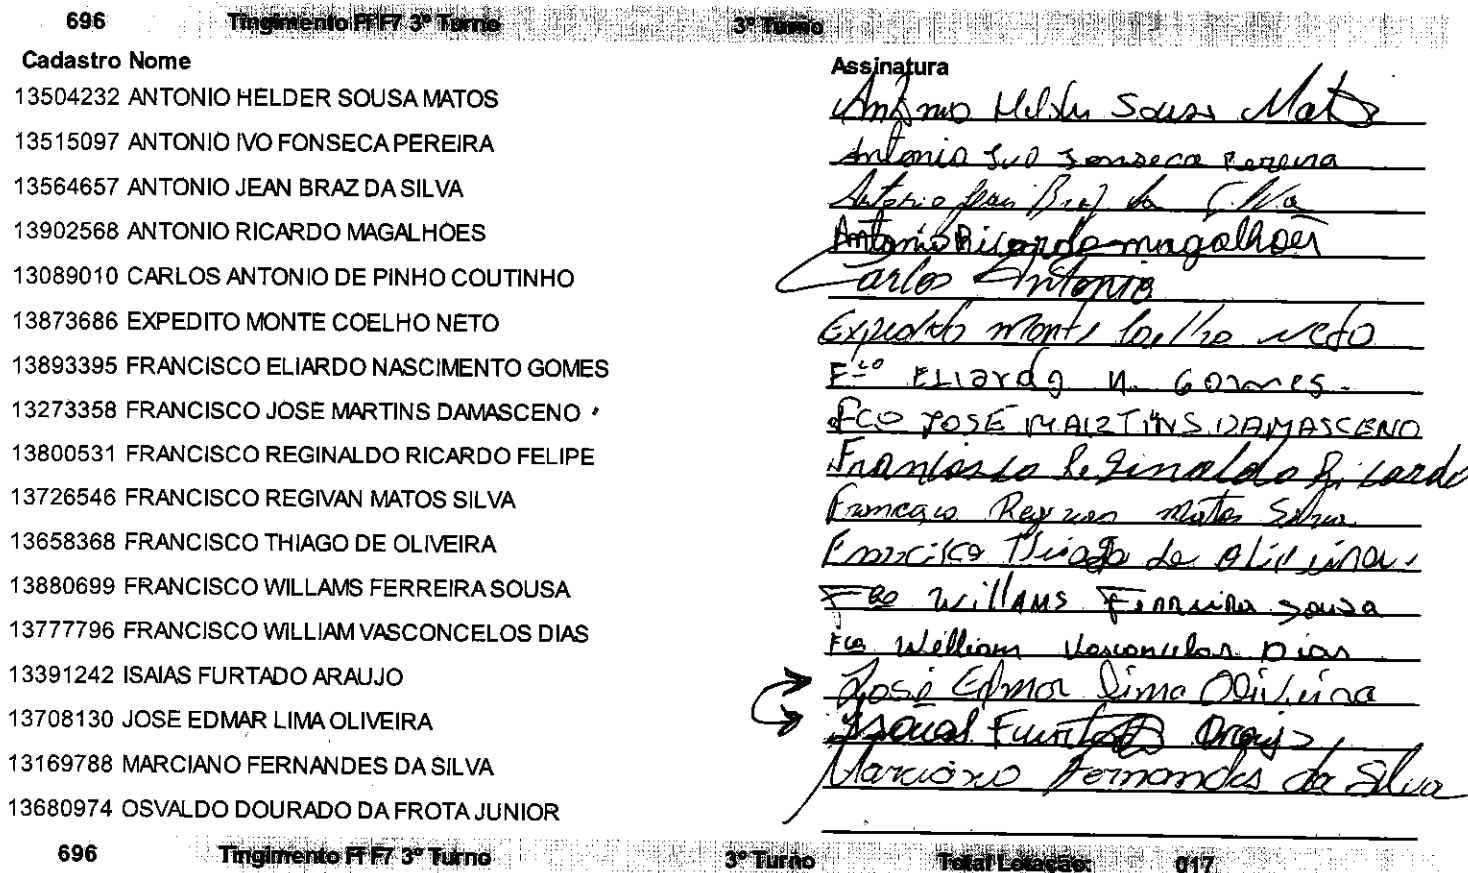 696 Tingimento FF F7 3º Turno 3º Turno
Cadastro Nome Assinatura
13504232 ANTONIO HELDER SOUSA MATOS Antônio Helder Sousa Matos
13515097 ANTONIO IVO FONSECA PEREIRA Antonio Ivo Fonseca Pereira
13564657 ANTONIO JEAN BRAZ DA SILVA Antonio Jean Braz da Silva
13902568 ANTONIO RICARDO MAGALHOES Antonio Ricardo magalhães
13089010 CARLOS ANTONIO DE PINHO COUTINHO Carlos Antonio
13873686 EXPEDITO MONTE COELHO NETO Expedito monte Coelho neto
13893395 FRANCISCO ELIARDO NASCIMENTO GOMES Fco ELiardo N. Gomes.
13273358 FRANCISCO JOSE MARTINS DAMASCENO FCO JOSÉ MARTINS DAMASCENO
13800531 FRANCISCO REGINALDO RICARDO FELIPE Francisco Reginaldo Ricardo
13726546 FRANCISCO REGIVAN MATOS SILVA Francisco Regivan Matos Silva
13658368 FRANCISCO THIAGO DE OLIVEIRA Francisco Thiago de Oliveira
13880699 FRANCISCO WILLAMS FERREIRA SOUSA Fco Willams Ferreira Sousa
13777796 FRANCISCO WILLIAM VASCONCELOS DIAS Fco William Vasconcelos Dias
13391242 ISAIAS FURTADO ARAUJO José Edmar Lima Oliveira
13708130 JOSE EDMAR LIMA OLIVEIRA Isaias Furtado Araujo
13169788 MARCIANO FERNANDES DA SILVA Marciano Fernandes da Silva
13680974 OSVALDO DOURADO DA FROTA JUNIOR
696 Tingimento FF F7 3º Turno 3º Turno Total Lotação: 017